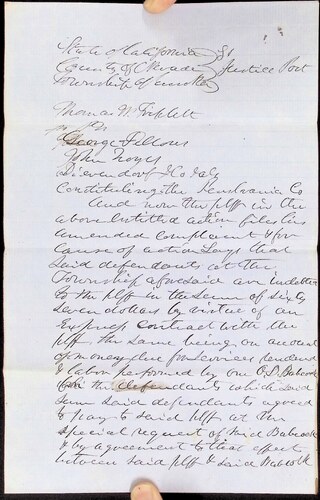 State of California } SS
County of Nevada } Justice Court
Township of Eureka
Thomas W. Triplett
George Fellows
John Noyes
& Co
Constituting the Pensylvania Co
And now the plff in the
above entitled action files his
amended complaint & for
cause of action Says that
Said defendants at the
Township aforesaid are indebted
to the plff in the sum of sixty
seven dollars by virtue of an
Express contract with the
plff. the same being on account
of money due for services rendered
& labor performed by one Babcock
for the defendants which said
sum said defendants agreed
to pay to said plff at the
special request of said Babcock
& by agreement to that effect
between said plff & said Babcock